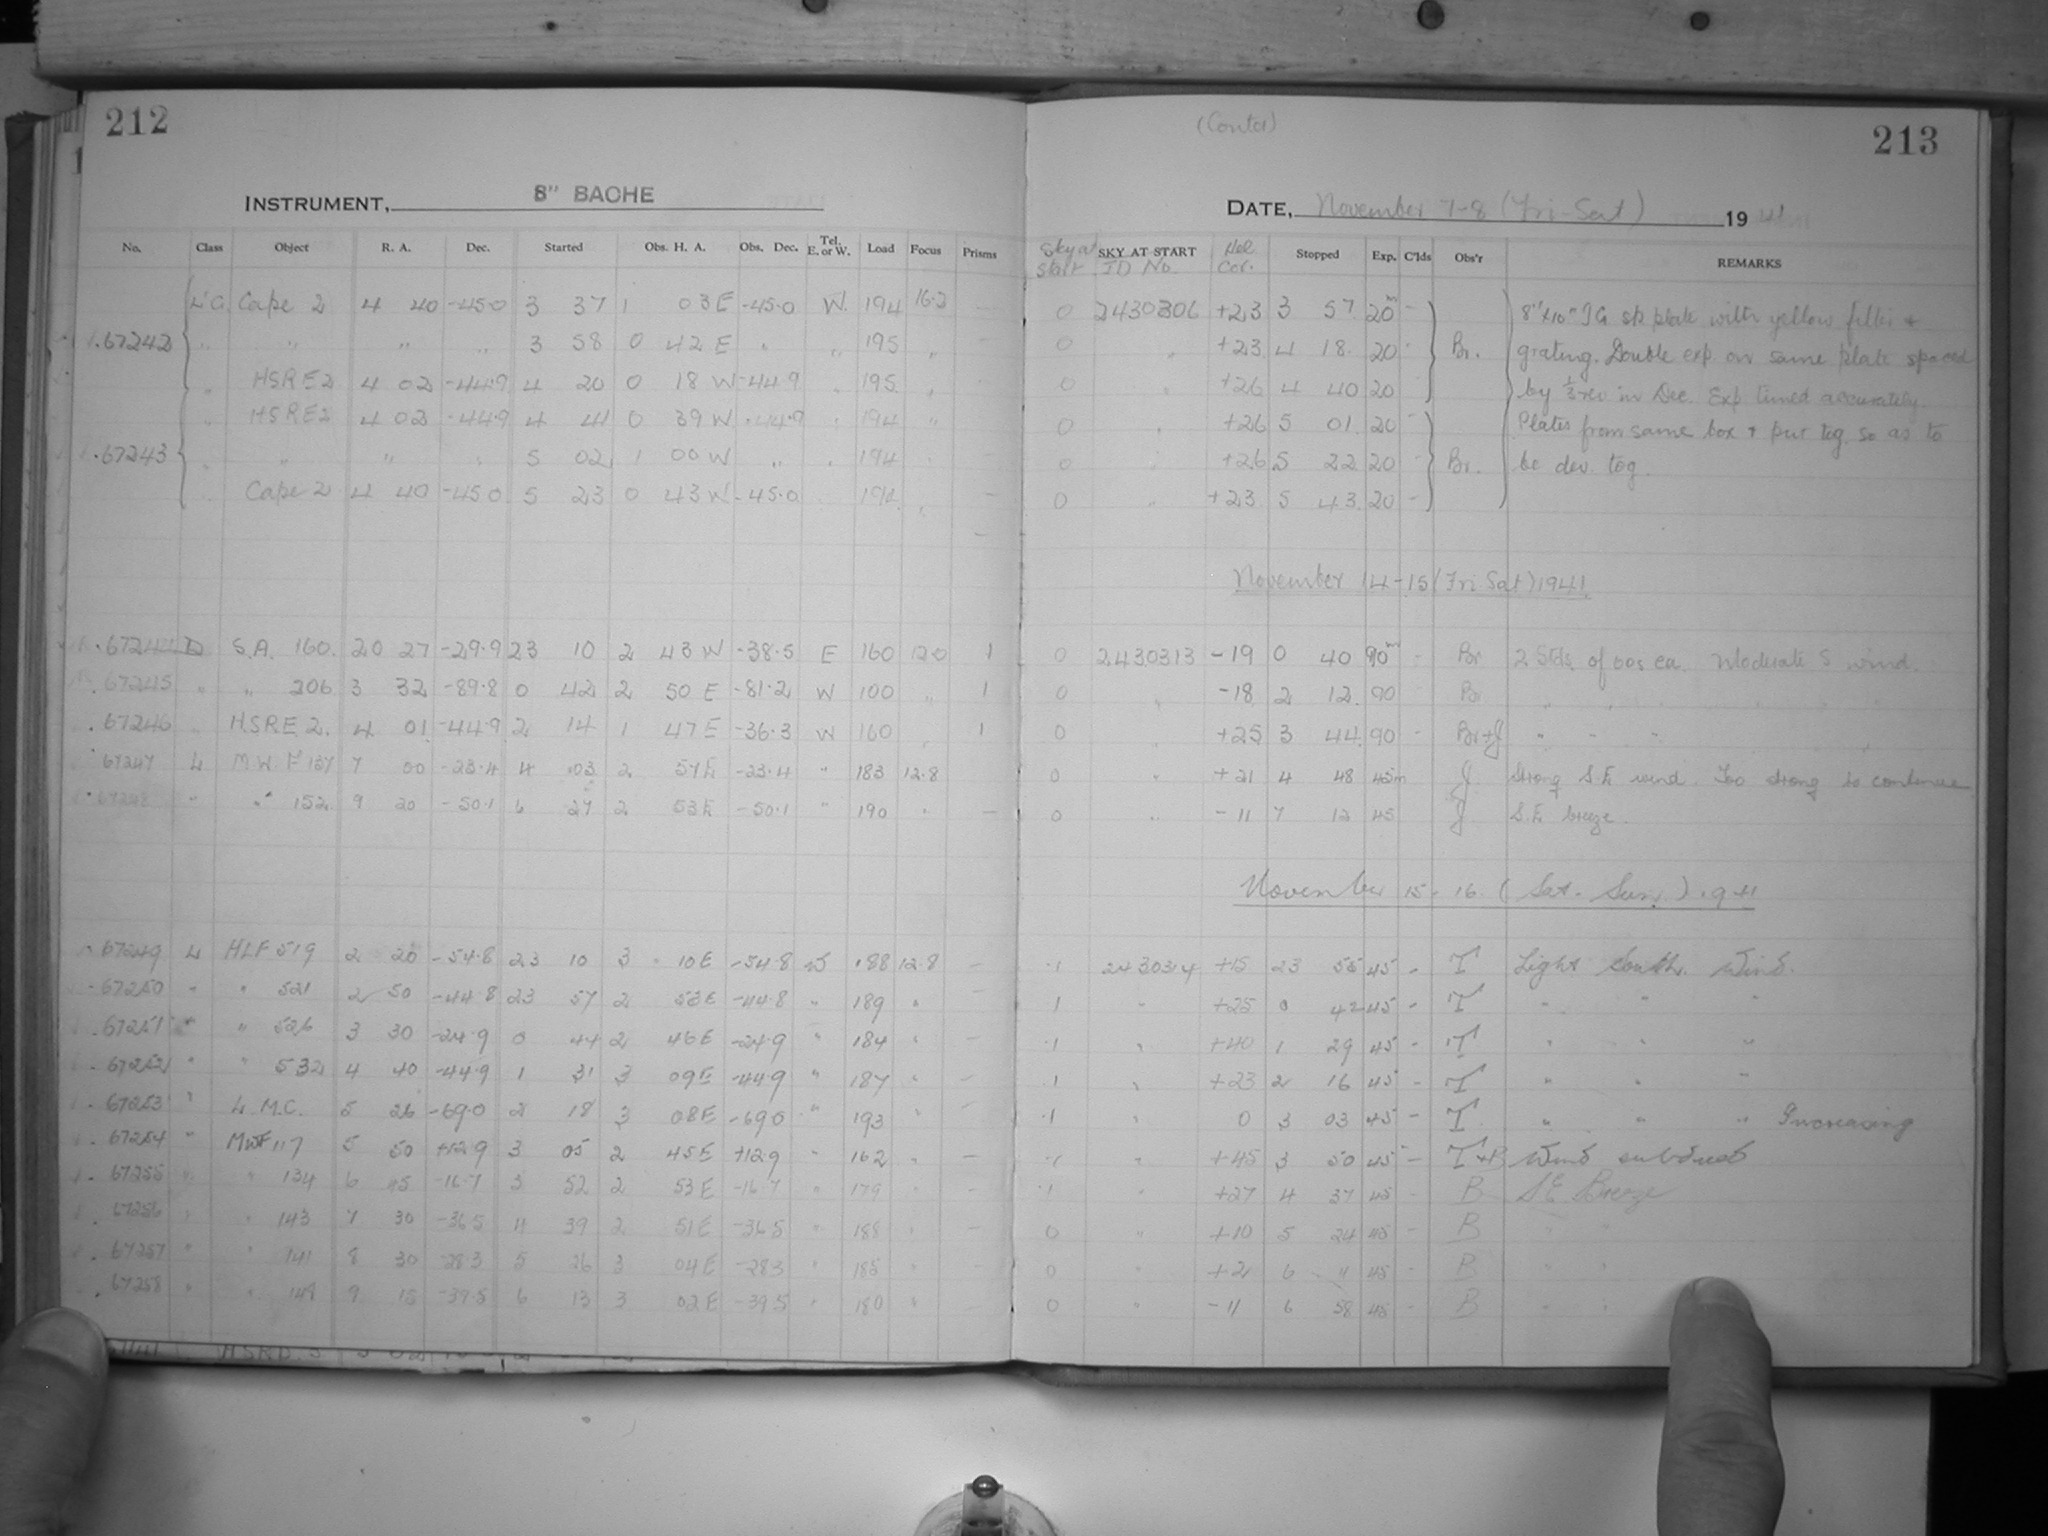 212
INSTRUMENT, 8" BACHE
No. Class Object R. A. Dec. Started Obs. H. A. Obs. Dec. Tel. E. or W. Load Focus Prisms
L.G. Cape 2 4 40 -45.0 3 37 1 03 E -45.0 W. 194 16.2
.67242 " " " " 3 58 0 42 E " " 195 "
" HSRE2 4 02 -44.9 4 20 0 18 W -44.9 " 195 "
" HSRE2 4 02 -44.9 4 41 0 39 W -44.9 " 194 "
.67243 " " " " 5 02 1 00 W " " 194
" Cape 2 4 40 -45.0 5 23 0 43 W -45.0 194 " -
.67244 D S.A. 160. 20 27 -29.9 23 10 2 43 W -38.5 E 160 12.0 1
.67245 " " 206 3 32 -89.8 0 42 2 50 E -81.2 W 100 " 1
.67246 " H.S.R.E 2. 4 01 -44.9 2 14 1 47 E -36.3 W 160 " 1
67247 L M.W.F 137 7 00 -23.4 4 03 2 57 E -23.4 " 183 12.8
67248 " " 152 9 20 -50.1 6 27 2 53 E -50.1 " 190 " -
67249 L HLF 519 2 20 -54.8 23 10 3 10 E -54.8 W 188 12.8 -
67250 " " 521 2 50 -44.8 23 57 2 53 E -44.8 " 189 " -
.67251 " " 526 3 30 -24.9 0 44 2 46 E -24.9 " 184 " -
.67252 " " 532 4 40 -44.9 1 31 3 09 E -44.9 " 187 " -
.67253 " L.M.C. 5 26 -69.0 2 18 3 08 E -69.0 " 193 " -
.67254 " MWF 117 5 50 +12.9 3 05 2 45 E +12.9 " 162 " -
67255 " " 134 6 45 -16.7 3 52 2 53 E -16.7 " 179 " -
67256 " " 143 7 30 -36.5 4 39 2 51 E -36.5 " 188 " -
67257 " " 141 8 30 -28.3 5 26 3 04 E -28.3 " 185 " -
67258 " " 149 9 15 -39.5 6 13 3 02 E -39.5 " 180 " -
(Contd) 213
DATE, November 7-8 (Fri-Sat) 1941
Sky at start SKY AT START JD No. Hel. Cor. Stopped Exp. C'lds Obs'r REMARKS
0 2430306 +23 3 57 20m - 8"x10" IG sp plate with yellow filter +
0 " +23 4 18. 20 - Br. grating. Double exp on same plate spaced
0 +26 4 40 20 by 1/3 rev in Dec. Exp timed accurately.
0 " +26 5 01. 20 - Plates from same box + put tog. so as to
0 " +26 5 22 20 - Br. be dev. tog.
0 " +23 5 43. 20 -
November 14-15 (Fri-Sat) 1941
0 2430313 -19 0 40 90m - Br 2 Stds. of 60s ea. Moderate S wind.
0 " -18 2 12. 90 Br " " " "
0 " +25 3 44. 90 - Br+J " " " "
0 " +21 4 48 45m J Strong S.E wind. Too strong to continue
0 " -11 7 12 45 J S.E breeze.
November 15-16 (Sat-Sun.) 1941
1 2430314 +15 23 55 45 - T Light South. Wind.
1 " +25 0 42 45 - T " " "
1 " +40 1 29 45 - T " " "
1 " +23 2 16 45 - T " " "
1 " 0 3 03 45 - T " " " Increasing
1 " +45 3 50 45 - T+B Wind subdued
1 " +27 4 37 45 - B S.E Breeze
0 " +10 5 24 45 - B " "
0 " +2 6 11 45 - B " "
0 " -11 6 58 45 - B " "